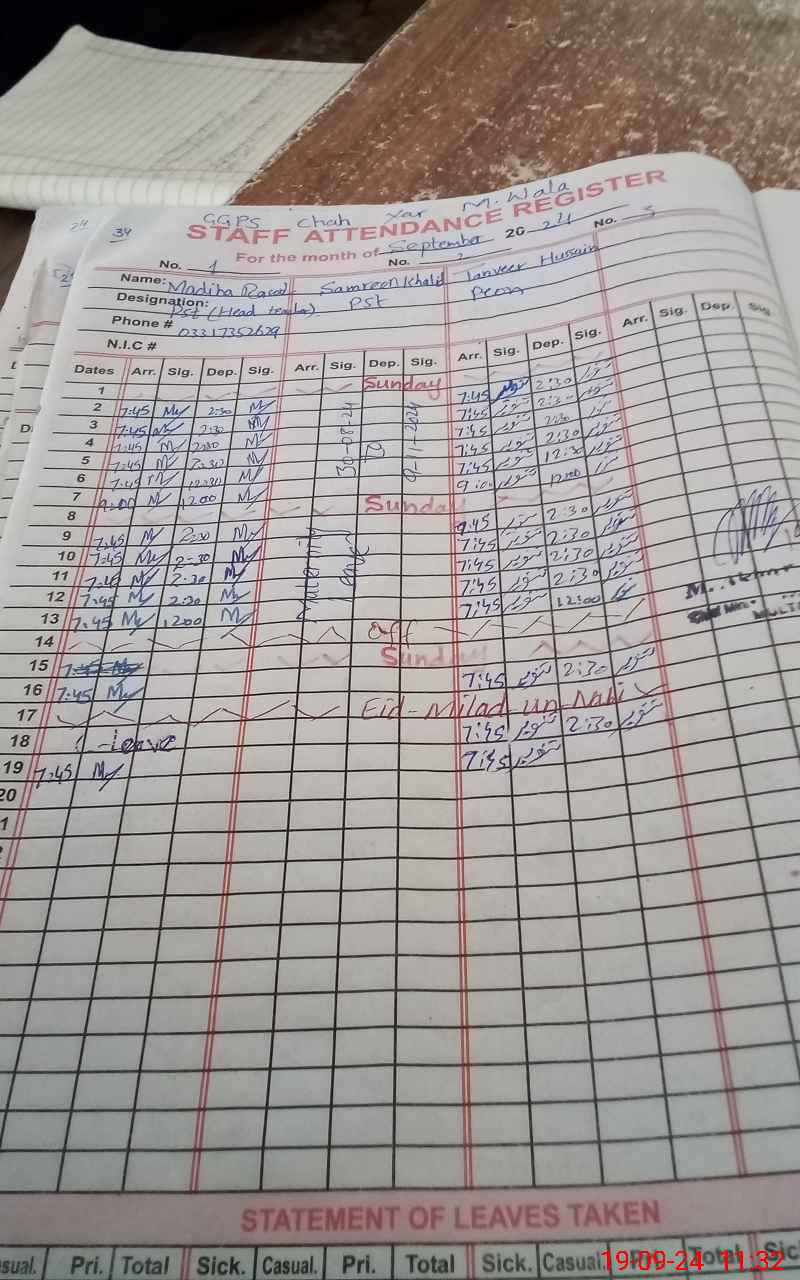 34
GGPS Chah Yar M. Wala
STAFF ATTENDANCE REGISTER
For the month of September 2024
No. 1 No. 2 No. 3
Name: Madiha Samreen Khalid Tanveer Hussain
Designation: Pst (Head teacher) PSt Peon
Phone # 03317352629
N.I.C #
Dates Arr. Sig. Dep. Sig. Arr. Sig. Dep. Sig. Arr. Sig. Dep. Sig. Arr. Sig. Dep. Sig.
1 Sunday
2 7:45 2:30 7:45 تنویر 2:30 تنویر
3 7:45 2:30 7:45 تنویر 2:30 تنویر
4 7:45 2:30 7:45 تنویر 2:30 تنویر
5 7:45 2:30 7:45 تنویر 2:30 تنویر
6 7:45 12:30 7:45 تنویر 12:30 تنویر
7 9:00 12:00 9:00 تنویر 12:00
30-08-24
To
8 Sunday
9 7:45 2:30 تنویر 2:30 تنویر
10 7:45 2:30 7:45 تنویر 2:30 تنویر
11 7:45 2:30 7:45 تنویر 2:30 تنویر
12 7:45 2:30 7:45 تنویر 2:30 تنویر
13 7:45 12:00 7:45 تنویر 12:00
Maternity
Leave
14 off
15 Sunday
16 7:45 7:45 تنویر 2:30 تنویر
17 Eid-Milad un-Nabi
18 leave 7:45 تنویر 2:30 تنویر
19 7:45 7:45 تنویر
20
STATEMENT OF LEAVES TAKEN
Pri. Total Sick. Casual. Pri. Total Sick. Casual. Pri. Total
19-09-24 11:32